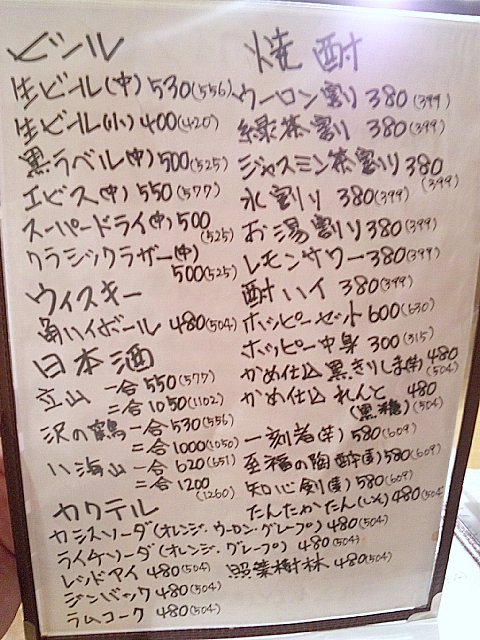 ビール
生ビール(中) 530(556)
生ビール(小) 400(420)
黒ラベル(中) 500(525)
エビス(中) 550(577)
スーパードライ(中) 500
(525)
クラシックラガー(中)
500(525)
ウィスキー
角ハイボール 480(504)
日本酒
立山 一合 550(577)
二合 1050(1102)
沢の鶴 一合 530(556)
二合 1000(1050)
八海山 一合 620(651)
二合 1200
(1260)
カクテル
カシスソーダ(オレンジ・ウーロン・グレープ) 480(504)
ライチソーダ(オレンジ・グレープ) 480(504)
レッドアイ 480(504)
ジンバック 480(504)
ラムコーク 480(504)
焼酎
ウーロン割り 380(399)
緑茶割り 380(399)
ジャスミン茶割り 380
(399)
水割り 380(399)
お湯割り 380(399)
レモンサワー 380(399)
酎ハイ 380(399)
ホッピーセット 600(630)
ホッピー中身 300(315)
かめ仕込 黒きりしま(芋) 480
(504)
かめ仕込 れんと 480
(黒糖) (504)
一刻者(芋) 580(609)
至福の陶酔(麦) 580(609)
知心剣(麦) 580(609)
たんたかたん(しそ) 480(504)
照葉樹林 480(504)